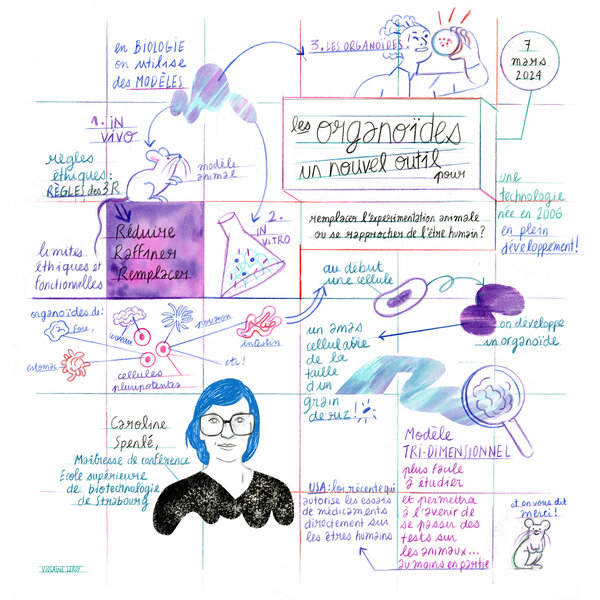 en BIOLOGIE
on utilise
des MODÈLES
3. LES ORGANOÏDES !
7
mars
2024
1. in
VIVO
les organoïdes
un nouvel outil
pour
remplacer l'experimentation animale
ou se rapprocher de l'être humain ?
règles
éthiques :
RÈGLE des 3R
modèle
animal
Réduire
Raffiner
Remplacer
2.
in
VITRO
une
technologie
née en 2006
en plein
développement !
limites
éthiques et
fonctionelles
au début
une cellule
on développe
un organoïde
organoïdes de :
foie,
cerveau
poumon
intestin
estomac
cellules
pluripotentes
etc !
un amas
cellulaire
de la
taille
d'un
grain
de riz !
Caroline
Spenlé,
Maîtresse de conférence
Ecole supérieure
de biotechnologie
de Strasbourg
Modèle
TRI-DIMENSIONNEL
plus facile
à étudier
et permettra
à l'avenir de
se passer des
tests sur
les animaux...
au moins en partie
USA : loi récente qui
autorise les essais
de médicaments
directement sur
les êtres humains
et on vous dit
merci !
VIOLAINE LEROY